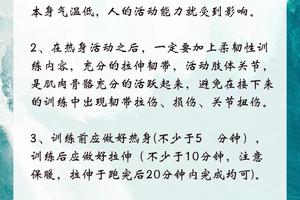 本身气温低，人的活动能力就受到影响。
2、在热身活动之后，一定要加上柔韧性训
练内容，充分的拉伸韧带，活动肢体关节，
是肌肉骨骼充分的活跃起来，避免在接下来
的训练中出现韧带拉伤、损伤、关节扭伤。
3、训练前应做好热身(不少于5 分钟），
训练后应做好拉伸（不少于10分钟，注意
保暖，拉伸于跑完后20分钟内完成均可)。